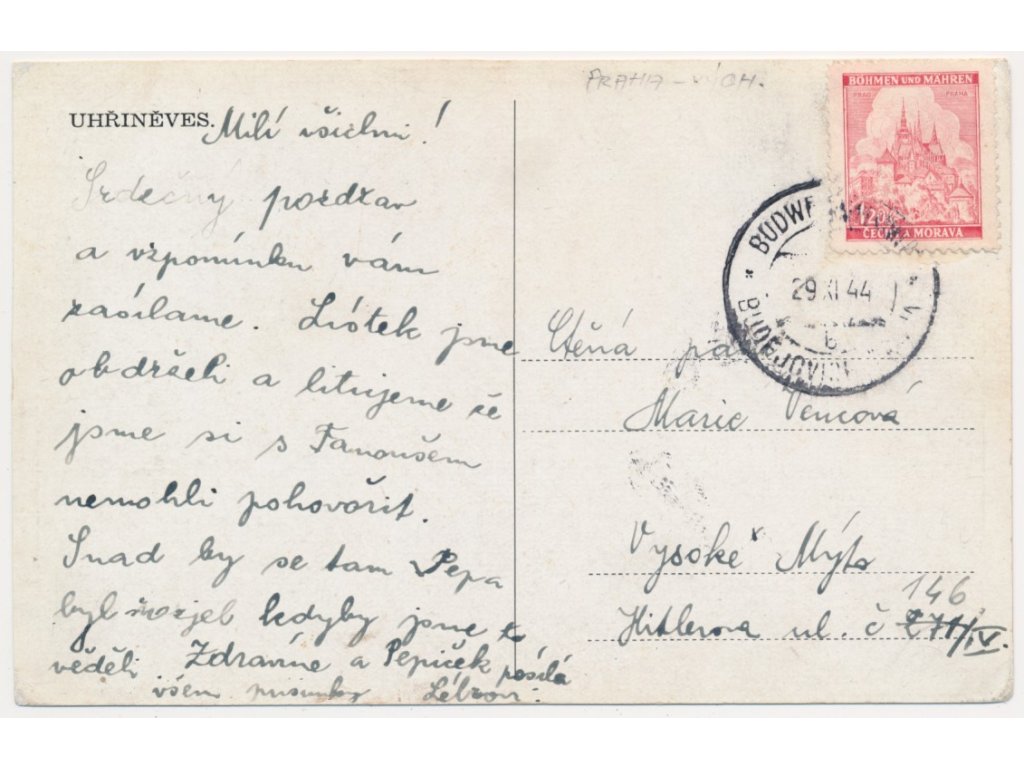 PRAHA - VÝCH.
UHŘINĚVES.
Milí všichni!
Srdečný pozdrav
a vzpomínku vám
zasíláme. Lístek jsme
obdrželi a litujeme že
jsme si s Fanoušem
nemohli pohovořit.
Snad by se tam Pepa
byl kdyby jsme to
věděli Zdravíme a Pepiček posílá
všem pusinky
BÖHMEN UND MÄHREN
PRAG PRAHA
1.20
ČECHY A MORAVA
BUDWEIS
29 XI 44
BUDĚJOVICE
Ctěná
Marie Vencová
Vysoké Mýto
146
Hitlerova ul. č 271/IV.